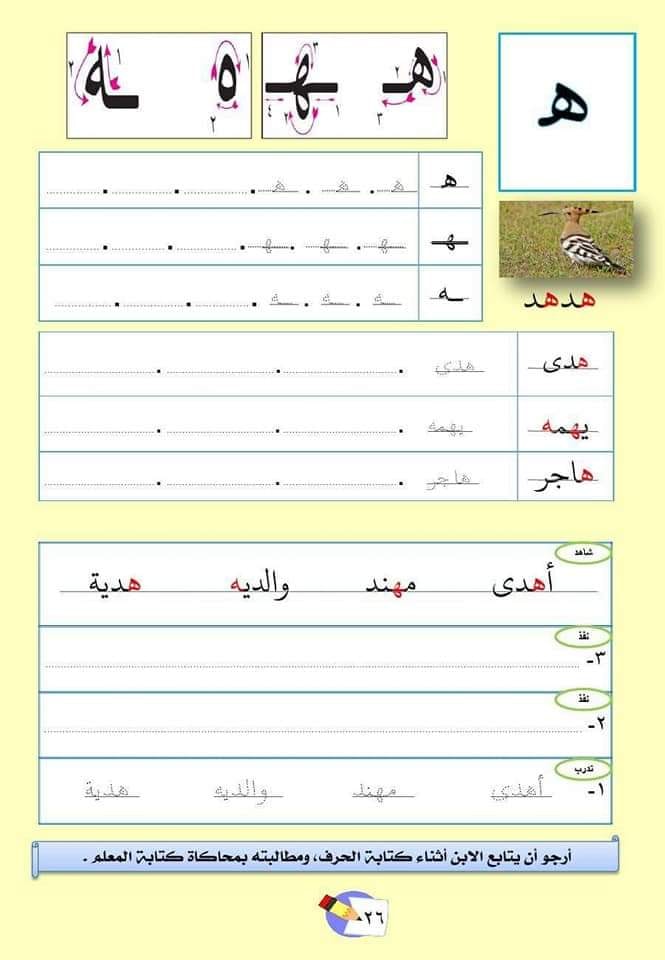 ه
هـ ١ ٢ ٣
ـهـ ١ ٢ ٣ ٤
ه ١ ٢
ـه ١ ٢
هدهد
هـ هـ . هـ . هـ
ـهـ ـهـ . ـهـ . ـهـ
ـه ـه . ـه . ـه
هدى هدي
يهمه يهمه
هاجر هاجر
شاهد
أهدى مهند والديه هدية
نفذ
٣-
نفذ
٢-
تدرب
١- أهدي مهند والديه هدية
أرجو أن يتابع الابن أثناء كتابة الحرف، ومطالبته بمحاكاة كتابة المعلم .
٢٦